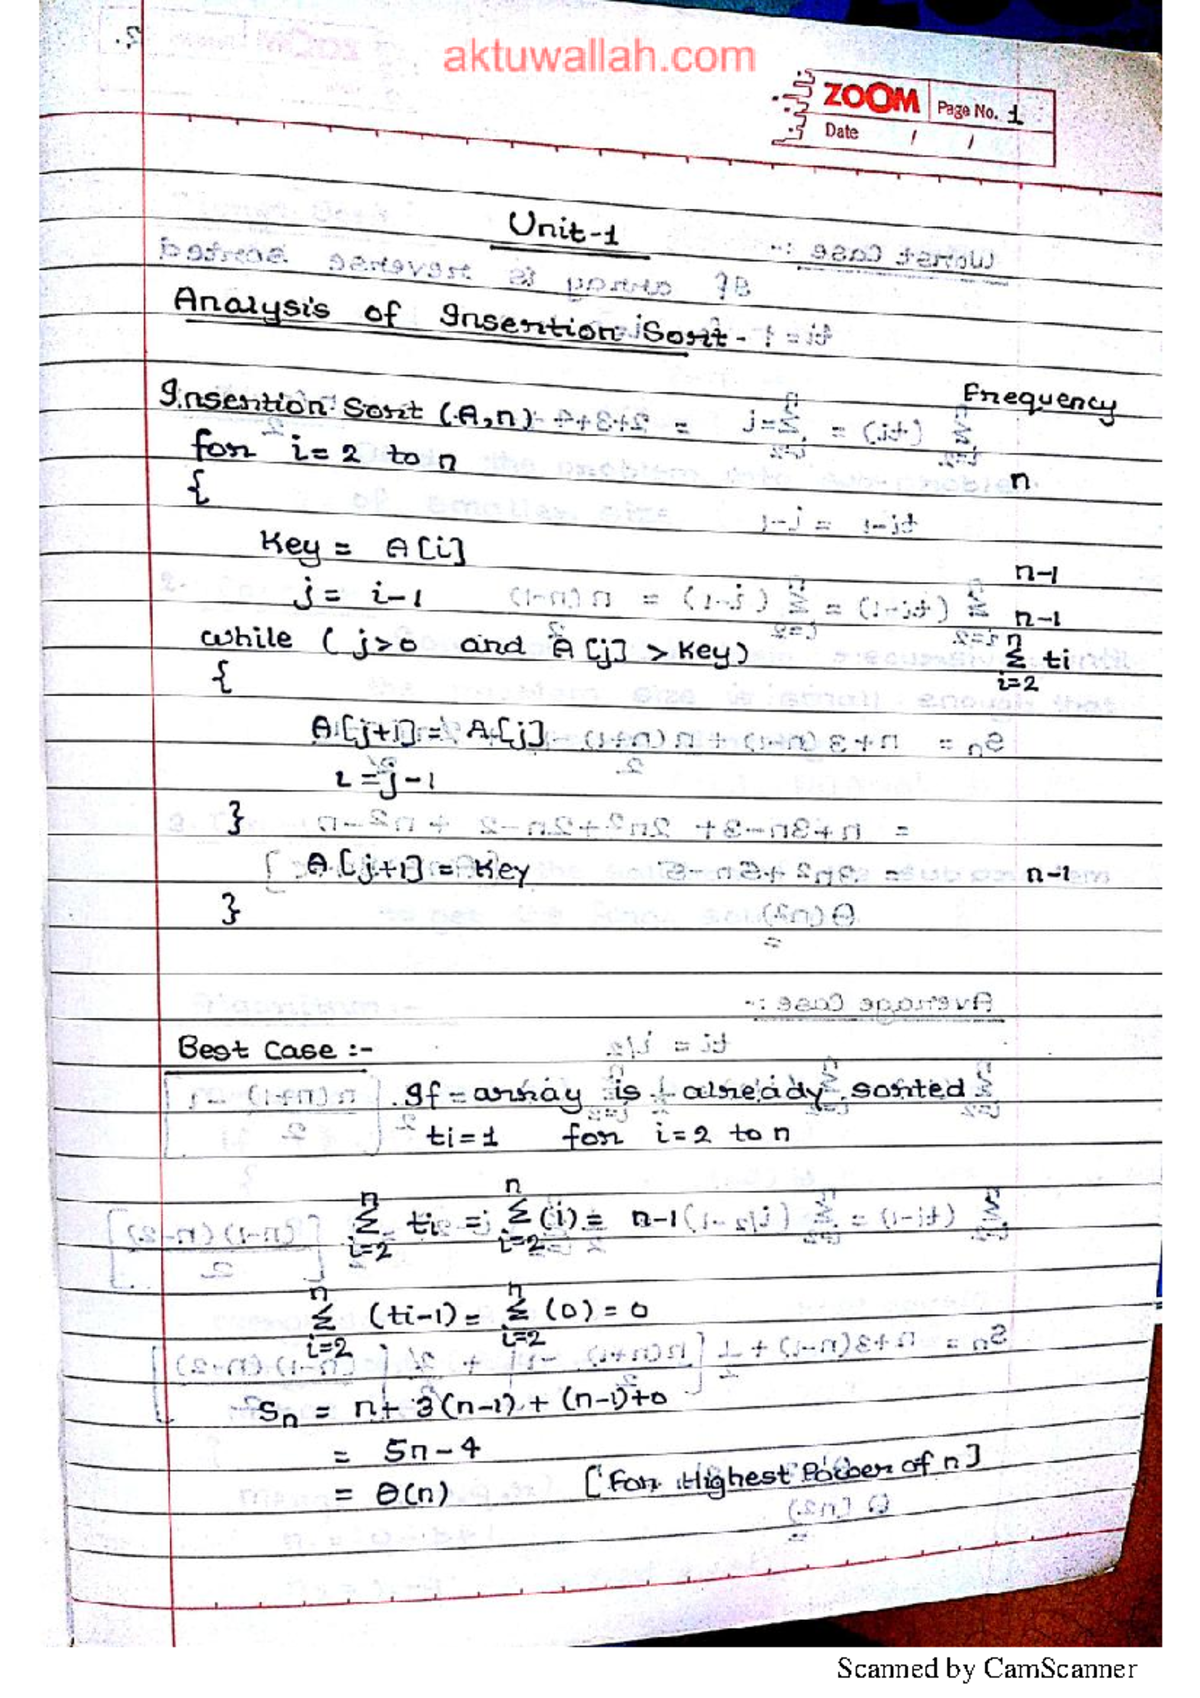 aktuwallah.com
ZOOM
Page No. 1
Date / /
Unit-1
Analysis of Insertion Sort -
Frequency
Insertion Sort (A,n)
for i=2 to n n
{
Key = A[i] n-1
j= i-1 n-1
while ( j>0 and A[j] > Key) n Σ i=2 ti
{
A[j+1] = A[j]
i = j-1
}
A[j+1] = Key n-1
}
Best Case :-
If array is already sorted
ti=1 for i=2 to n
n Σ i=2 ti = n Σ i=2 (i) = n-1
n Σ i=2 (ti-1) = n Σ i=2 (0) = 0
Sn = n+ 3(n-1) + (n-1)+0
= 5n-4
= θ(n) [For Highest Power of n]
Scanned by CamScanner